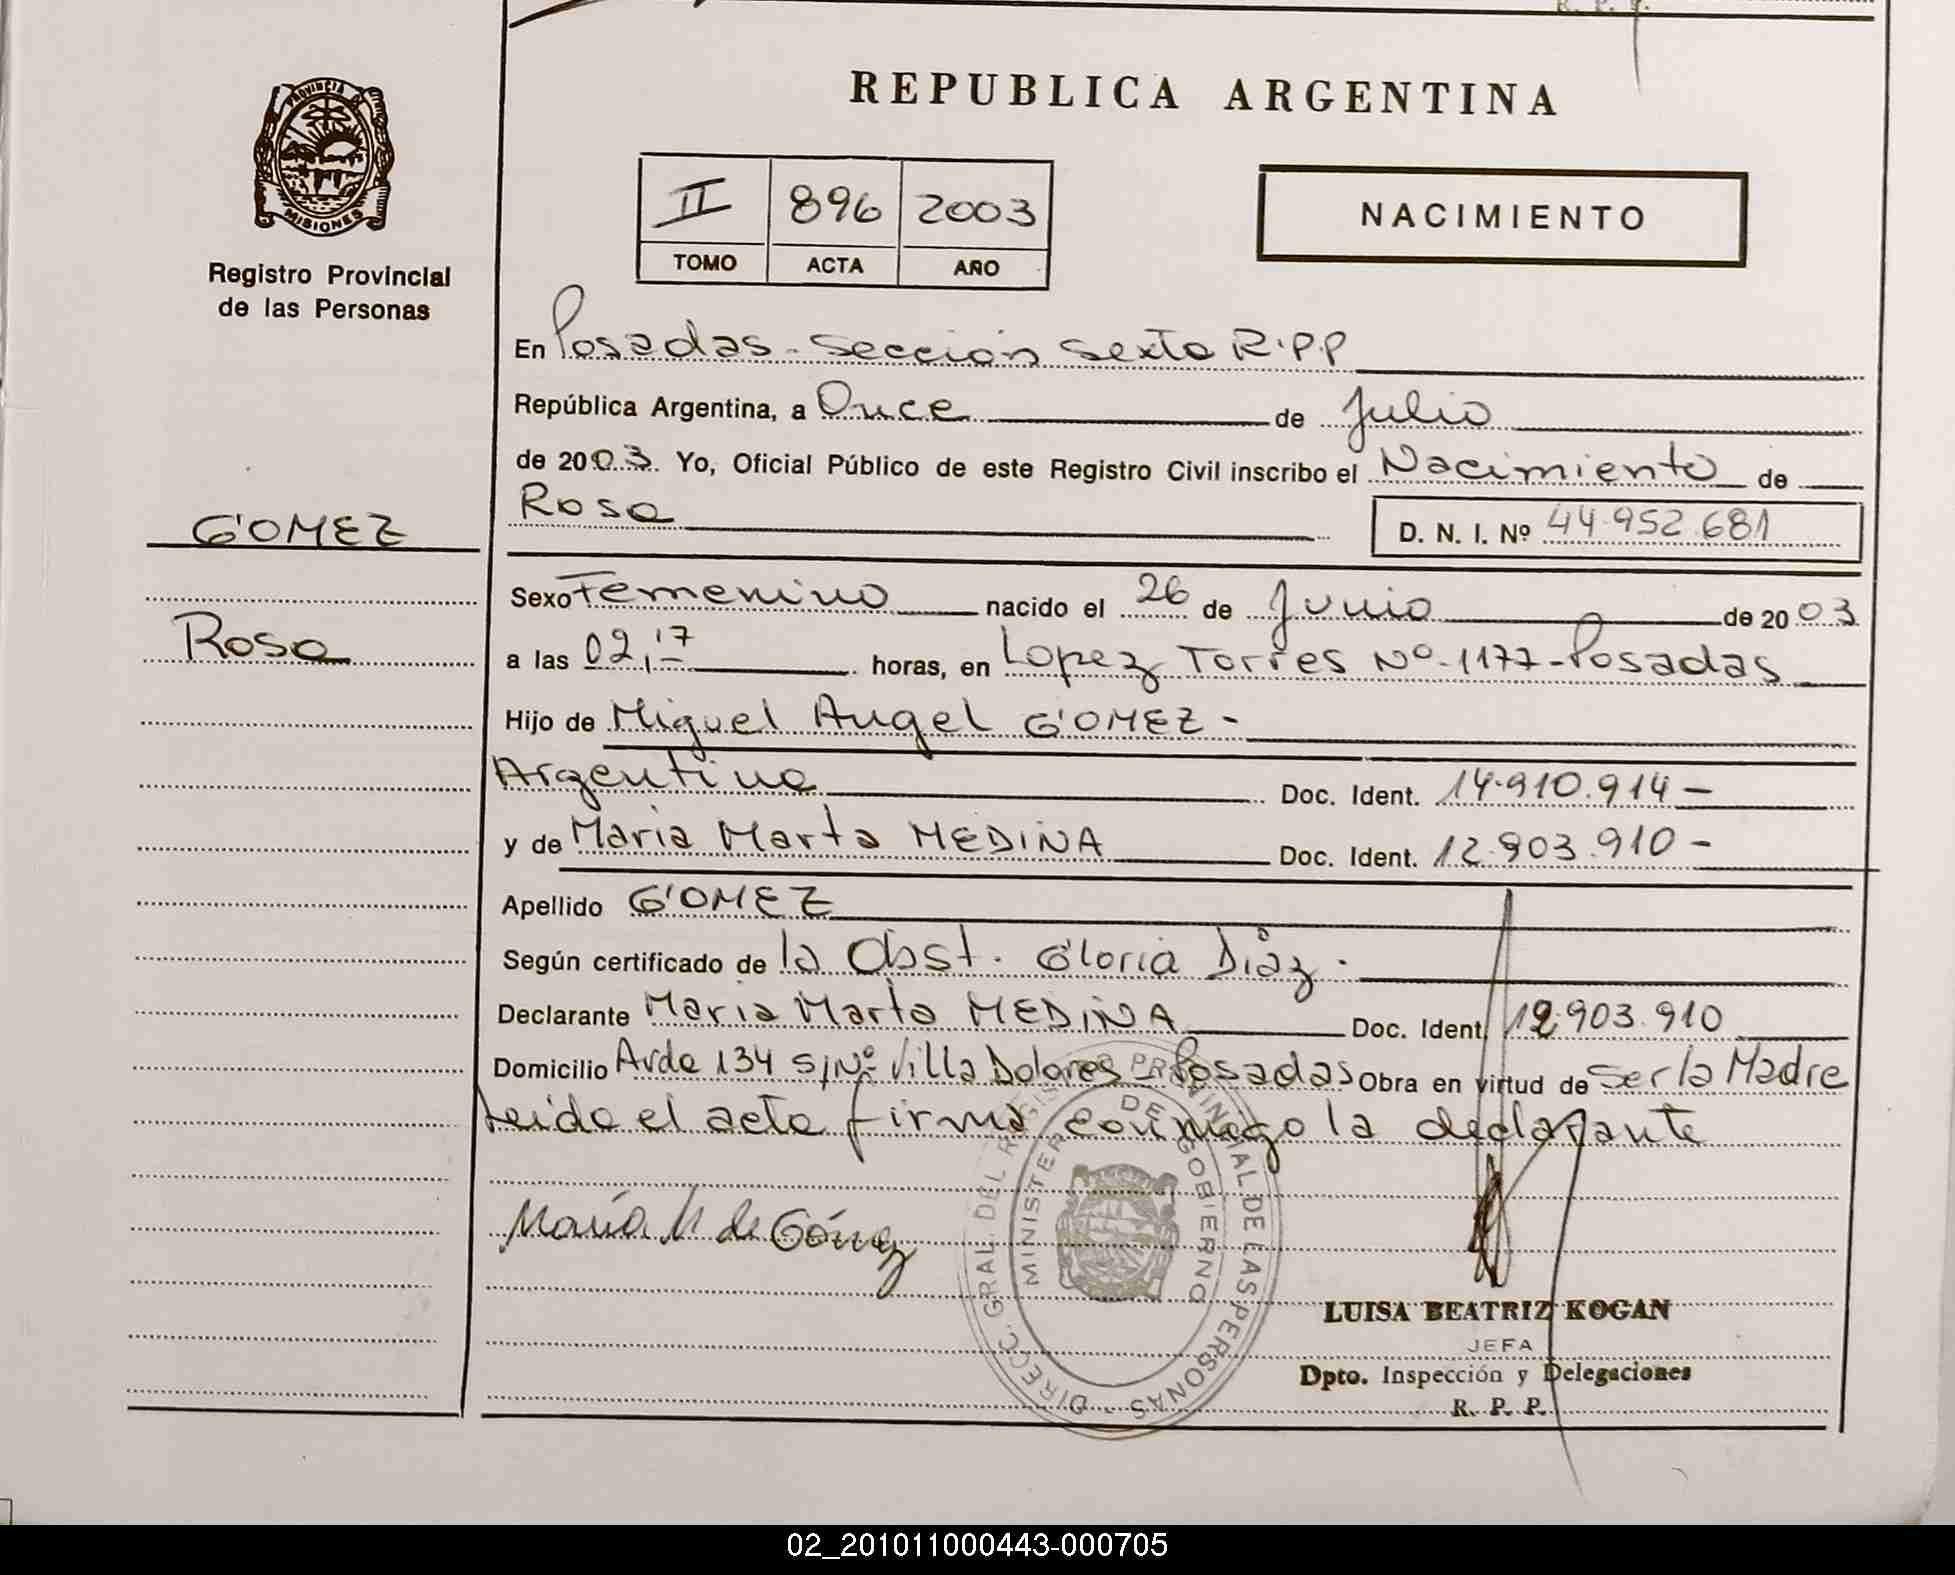 R. P. P.
REPUBLICA ARGENTINA
PROVINCIA DE MISIONES
Registro Provincial
de las Personas
II 896 2003
TOMO ACTA AÑO
NACIMIENTO
En Posadas - Sección Sexta R.P.P
República Argentina, a Once de Julio
de 2003. Yo, Oficial Público de este Registro Civil inscribo el Nacimiento de
Rosa D. N. I. Nº 44.952.681
GOMEZ
Rosa
Sexo Femenino nacido el 26 de Junio de 2003
a las 02,17 horas, en Lopez Torres Nº 1177 - Posadas
Hijo de Miguel Angel GOMEZ -
Argentina Doc. Ident. 14.910.914 -
y de Maria Marta MEDINA Doc. Ident. 12.903.910 -
Apellido GOMEZ
Según certificado de la Obst. Gloria Diaz.
Declarante Maria Marta MEDINA Doc. Ident. 12.903.910
Domicilio Avda 134 S/Nº Villa Dolores Posadas Obra en virtud de Ser la Madre
Leida el acta firma conmigo la declarante
María M de Gómez
DIRECC. GRAL. DEL REGISTRO PROVINCIAL DE LAS PERSONAS
MINISTERIO DE GOBIERNO
LUISA BEATRIZ KOGAN
JEFA
Dpto. Inspección y Delegaciones
R. P. P.
02_201011000443-000705